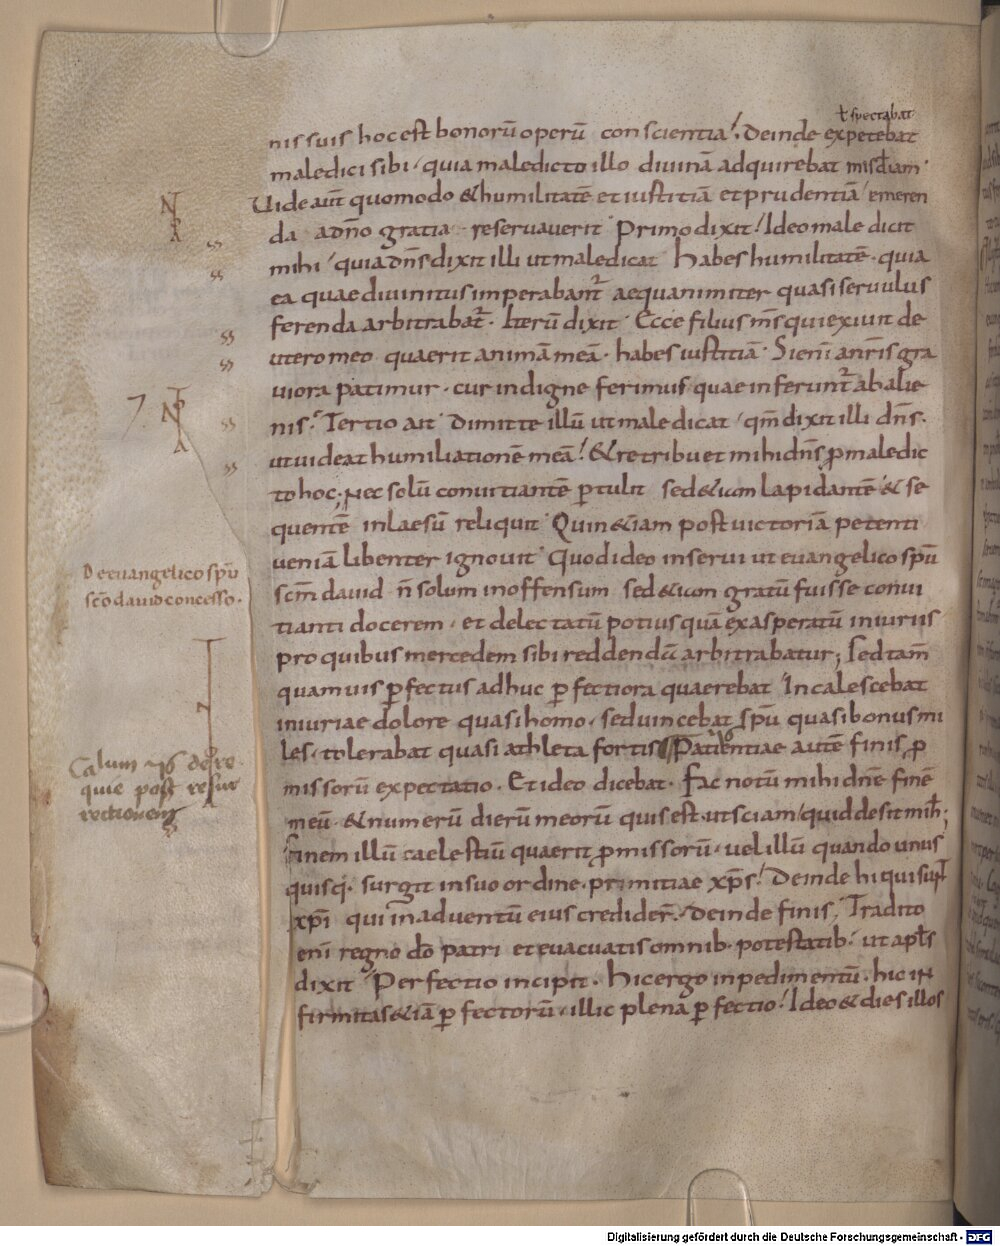 ł spectabat
nis suis hoc est bonorū operū conscientia. Deinde expetebat
maledici sibi, quia maledicto illo divinā adquirebat misđiam.
Uide aūt quomodo & humilitatē et iustitiā et prudentiā emeren
da a dn̄o gratia reservaverit. Primo dixit. Ideo male dicit
mihi, quia dn̄s dixit illi ut maledicat. Habes humilitatē. quia
ea quae divinitus imperabant̄ aequanimiter quasi servulus
ferenda arbitrabat̄. Iterū dixit. Ecce filius ms̄ qui exivit de
utero meo quaerit animā meā. habes iustitiā. Si enī a nr̄is gra
viora patimur. cur indigne ferimus quae inferunt̄ ab alie
nis. Tertio ait. Dimitte illū ut male dicat, qm̄ dixit illi dn̄s.
ut videat humiliationē meā. & retribuet mihi dn̄s ꝓ maledic
to hoc. Nec solū convitiantē ꝑtulit sed & iam lapidantē & se
quentē inlaesū reliquit. Quin & iam post victoriā petenti
veniā libenter ignovit. Quod ideo inserui ut evangelico spū
De evangelico spū
scō david concesso.
scm̄ david n̄ solum inoffensum sed & iam gratū fuisse convi
tianti docerem. et delectatū potius quā exasperatū iniuriis
pro quibus mercedem sibi reddendā arbitrabatur; Sed tam̄
quamvis ꝑfectus adhuc ꝑfectiora quaerebat. Incalescebat
iniuriae dolore quasi homo. sed vincebat spū quasi bonus mi
les. tolerabat quasi athleta fortis. Patientiae autē finis ꝓ
missorū expectatio. Et ideo dicebat. Fac notū mihi dn̄e finē
meū. & numerū dierū meorū quis est. ut sciam quid desit mih̄;
finem illū caelestiū quaerit ꝓmissorū. vel illū quando unus
quisq. surgit in suo ordine. primitiae xp̄s. Deinde hi qui sunt
xp̄i qui in adventū eius credider̄. Deinde finis. Tradito
enī regno dō patri et evacuatis omnib. potestatib. ut apl̄s
dixit. Perfectio incipit. Hic ergo inpedimentū. hic in
firmitas & iā ꝑfectorū. illic plena ꝑfectio. Ideo & dies illos
Digitalisierung gefördert durch die Deutsche Forschungsgemeinschaft - DFG